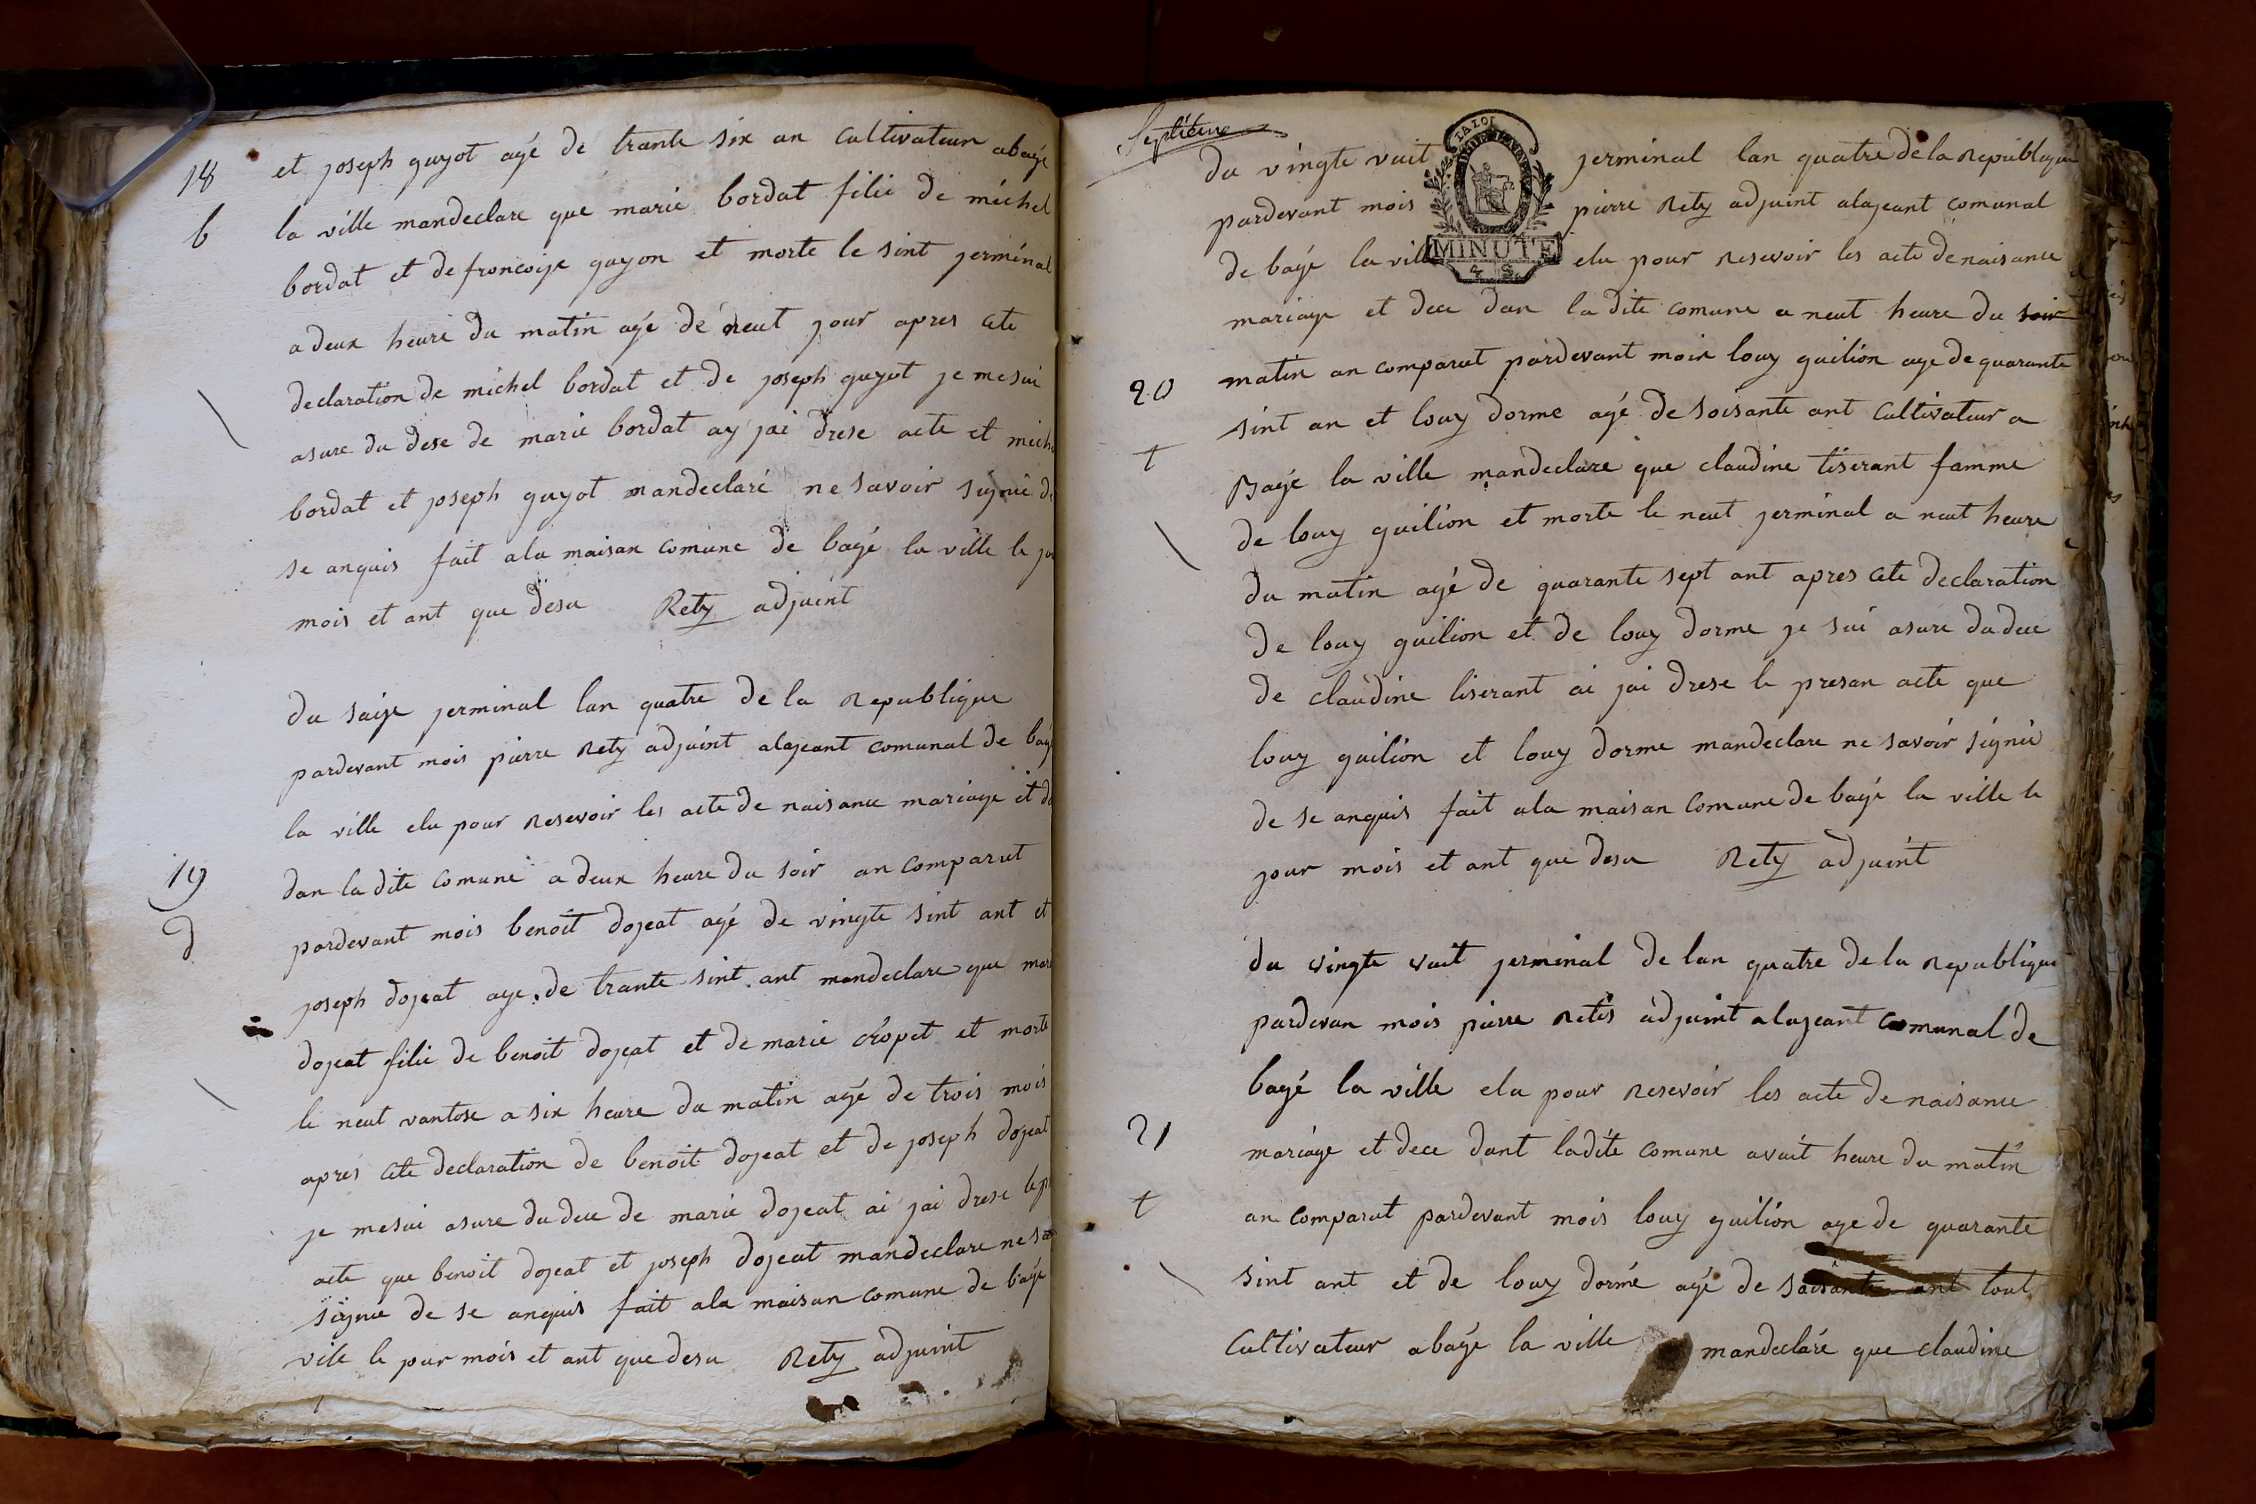 18
et joseph guyot agé de trante six an cultivateur abagé
b
la ville mandeclare que marie bordat filie de méchel
bordat et de froncoise guyon et morte le sint jerminal
a deux heure du matin agé de neut jour apres cete
declaration de michel bordat et de joseph guyot je me sui
asure du dese de marie bordat ay jai drese acte et
bordat et joseph guyot mandeclaré ne savoir signie
se anquis fait ala maisan comune de bagé la ville le
mois et ant que desu Rety adjuint
du saise jerminal lan quatre de la Republique
pardevant mois pierre Rety adjuint alajeant comunal de
la ville elu pour Resevoir les acte de naisance mariage et
19
dan la dite comune a deux heure du soir an comparut
d
pardevant mois benoit dojeat agé de vingte sint ant et
joseph dojeat age de trante sint ant mandeclare que
dojeat filie de benoit dojeat et de marie chopet et morte
le neut vantose a six heure du matin agé de trois mois
aprés cete declaration de benoit dojeat et de joseph dojeat
je me sui asure du dece de marie dojeat ai jai drese
acte que benoit dojeat et joseph dojeat mandeclare ne
signie de se anquis fait ala maisan comune de bagé
vile le pur mois et ant que desu Rety adjuint
Septième
du vingte vuit jerminal lan quatre de la Republique
pardevant mois pierre Rety adjuint alajeant comunal
de bagé la ville elu pour Resevoir les acte de naisance
MINUTE
4 S
mariage et dece dan la dite comune a neut heure du soir
matin an comparut pardevant moix louy guilion age de quarante
20
sint an et louy dorme agé de soisante ant cultivateur a
t
Bagé la ville mandeclare que claudine tiserant famme
de louy guilion et morte le neut jerminal a neut heure
du matin agé de quarante sept ant apres cete declaration
de louy guilion et de louy dorme je sui asure du dece
de claudine tiserant ai jai drese le presan acte que
louy guilion et louy dorme mandeclare ne savoir signie
de se anquis fait ala maisan comune de bagé la ville le
jour mois et ant que desu Rety adjuint
du vingte vuit jerminal de lan quatre de la Republique
pardevan mois pierre Retis adjuint alajeant comunal de
bagé la ville elu pour Resevoir les acte de naisance
21
mariage et dece dant ladite comune avuit heure du matin
t
an comparut pardevant mois louy guilion age de quarante
sint ant et de louy dormé agé de soisante ant tout
cultivateur abagé la ville mandeclaré que claudine